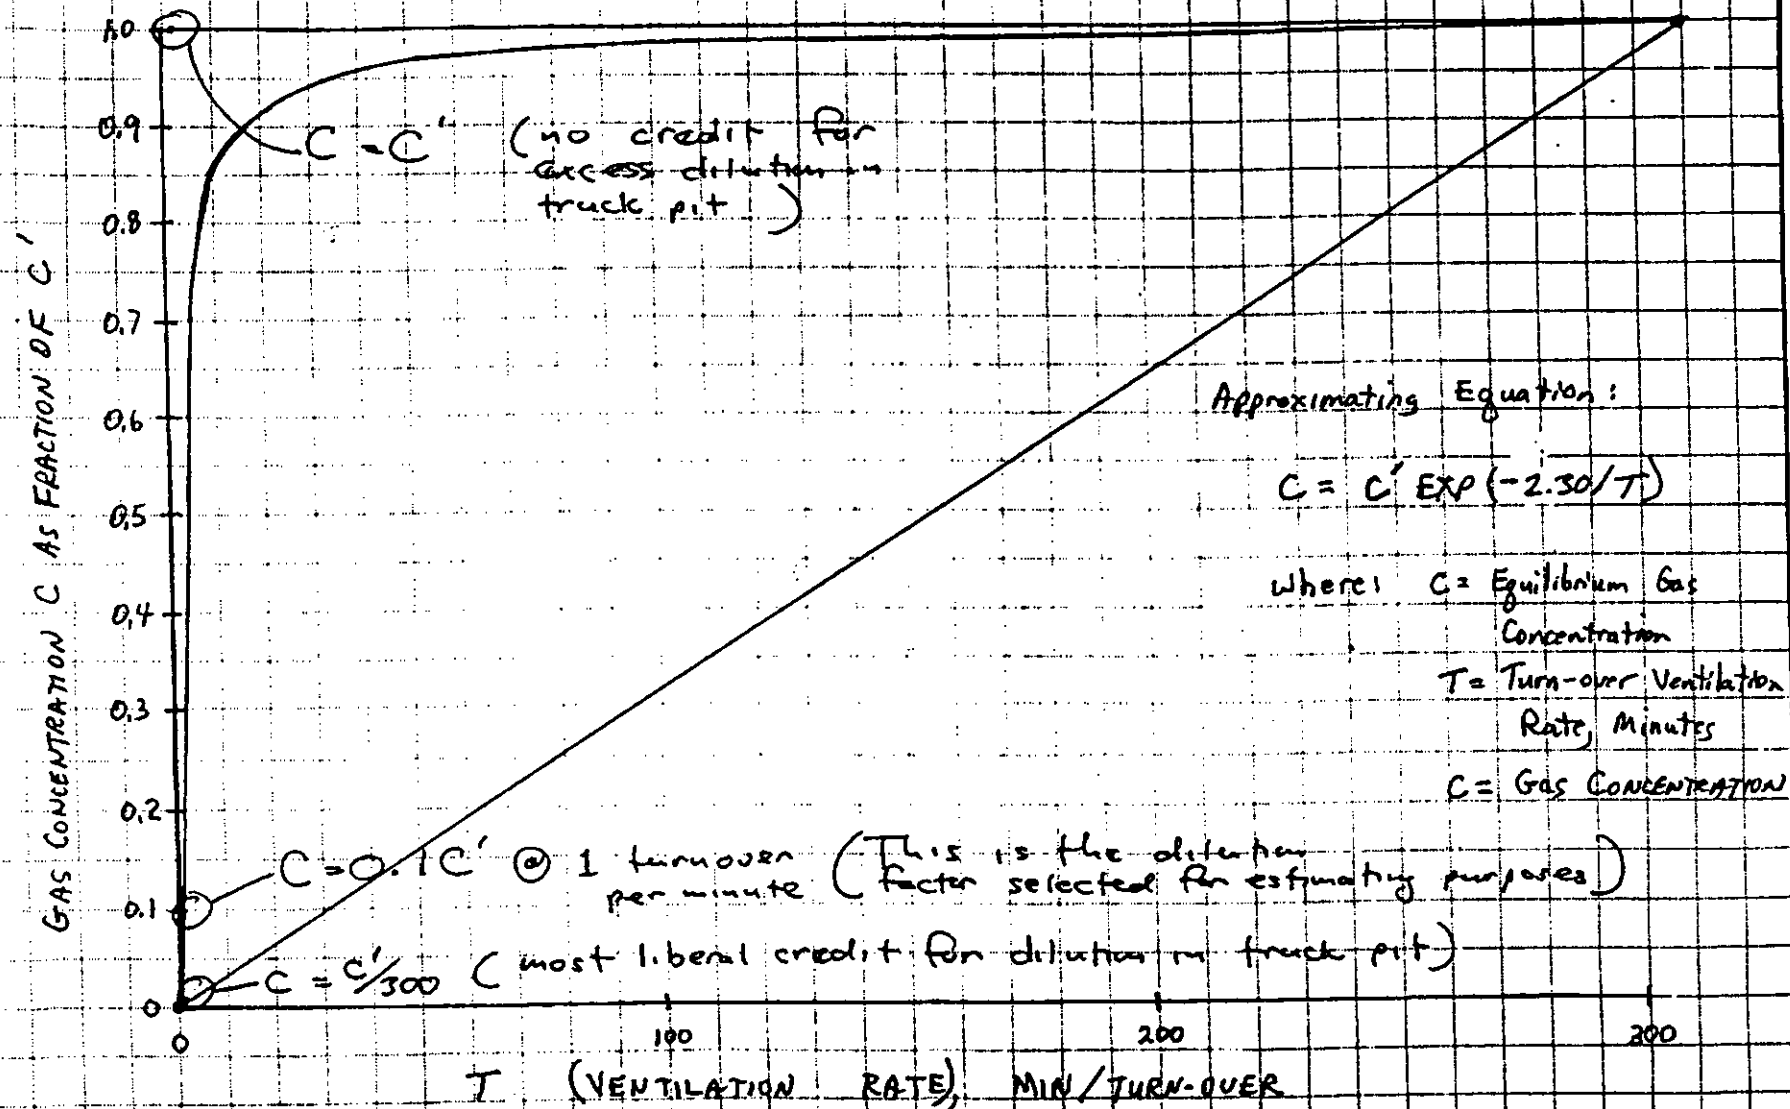 1.0
C = C' (no credit for
excess dilution in
truck pit)
0.9
0.8
0.7
0.6
0.5
0.4
0.3
0.2
0.1
0
GAS CONCENTRATION C AS FRACTION OF C'
Approximating Equation:
C = C' EXP (-2.30/T)
where: C = Equilibrium Gas
Concentration
T = Turn-over Ventilation
Rate, Minutes
C = Gas CONCENTRATION
C = 0.1C' @ 1 turnover
per minute
(This is the dilution
factor selected for estimating purposes)
C = C'/300 (most liberal credit for dilution in truck pit)
0 100 200 300
T (VENTILATION RATE), MIN/TURN-OVER